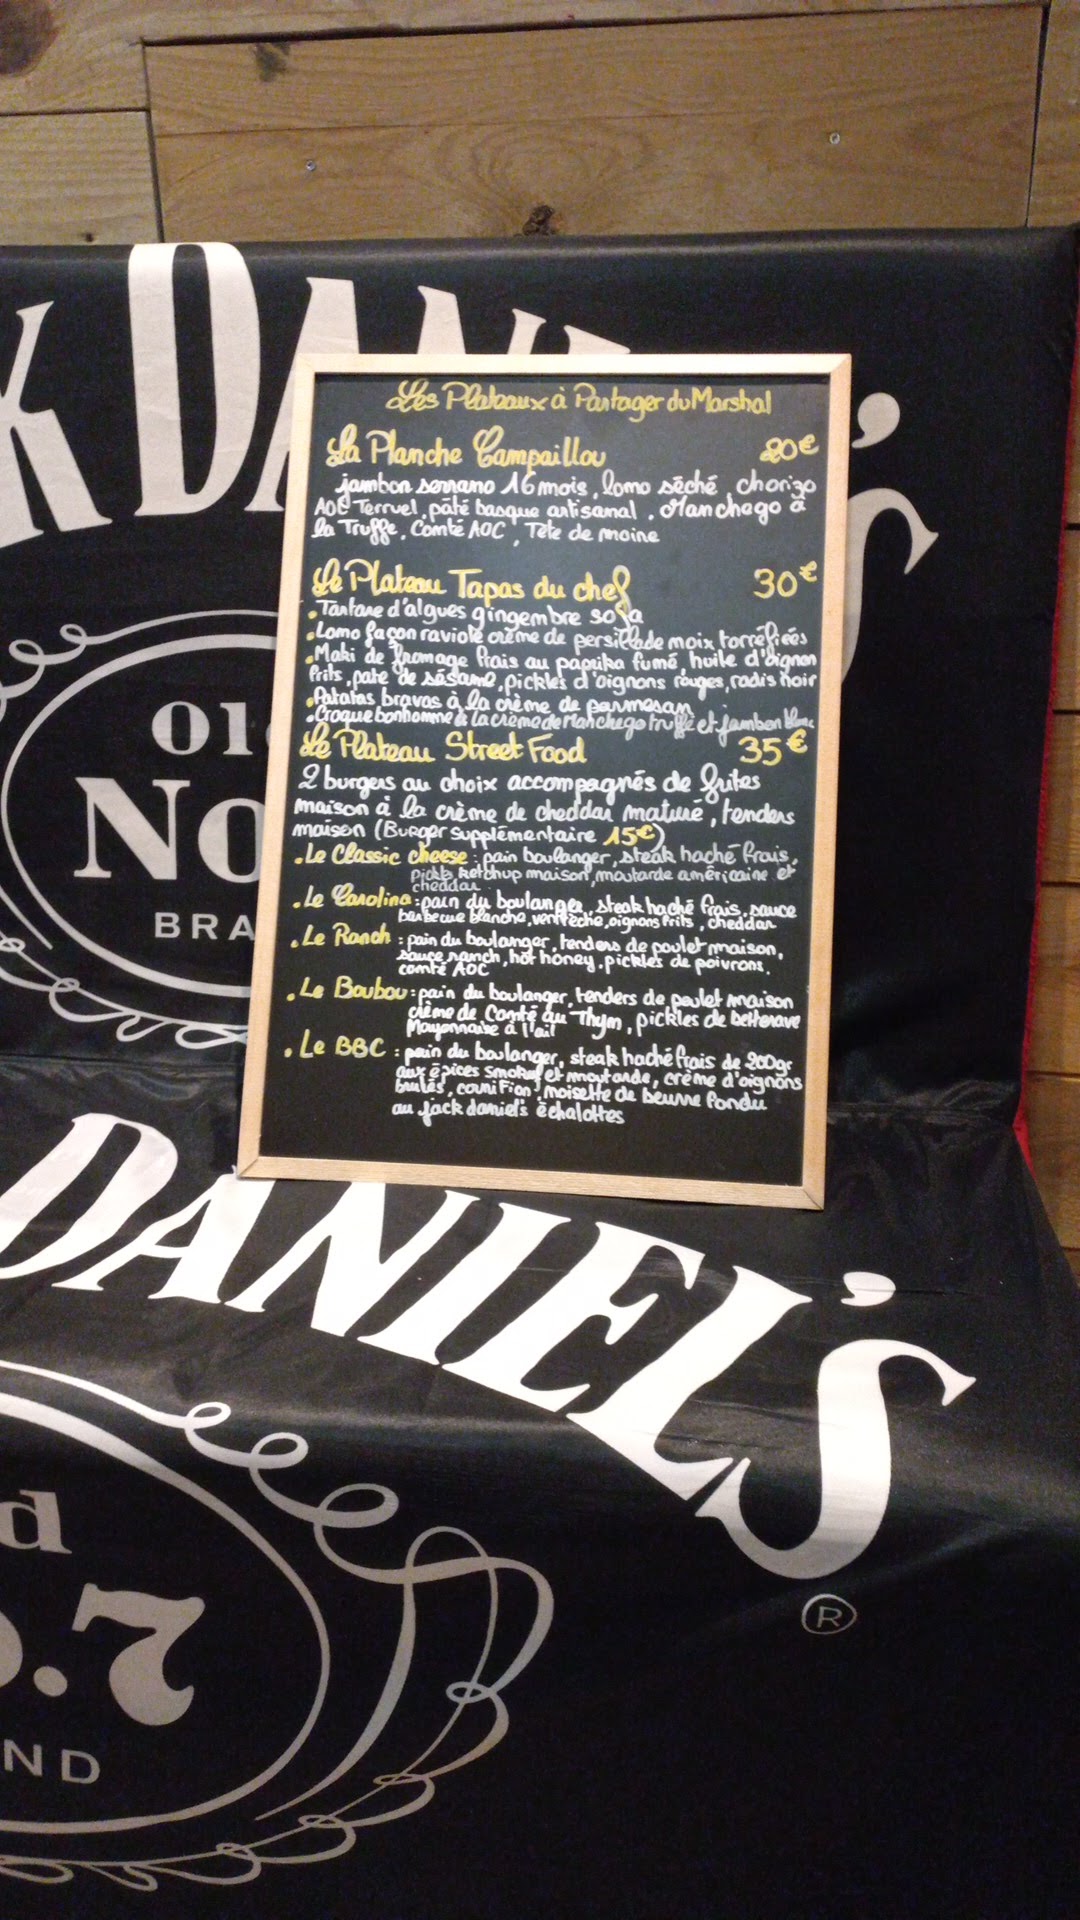 K DANIEL'S
Les Plateaux à Partager du Marshal
La Planche Campaillou 20€
jambon serrano 16 mois, lomo séché, chorizo
AOC Terruel, pâté basque artisanal, Manchego à
la Truffe, Comté AOC, Tête de moine
Le Plateau Tapas du chef 30€
• Tartare d'algues gingembre soja
• Lomo façon raviole crème de persillade noix torréfiées
• Maki de fromage frais au paprika fumé, huile d'oignon
frits, pate de sésame, pickles d'oignons rouges, radis noir
• Patatas bravas à la crème de parmesan
• Croque bonhomme à la crème de Manchego truffé et jambon blanc
Le Plateau Street Food 35€
2 burgers au choix accompagnés de frites
maison à la crème de cheddar maturé, tenders
maison (Burger supplémentaire 15€)
• Le Classic cheese : pain boulanger, steak haché frais,
pickls, ketchup maison, moutarde américaine et
cheddar
• Le Carolina : pain du boulanger, steak haché frais, sauce
barbecue blanche, ventrèche, oignons frits, cheddar
• Le Ranch : pain du boulanger, tenders de poulet maison,
sauce ranch, hot honey, pickles de poivrons,
comté AOC
• Le Boubou : pain du boulanger, tenders de poulet maison
crème de Comté au Thym, pickles de betterave
Mayonnaise à l'ail
• Le BBC : pain du boulanger, steak haché frais de 200gr
aux épices smokey et moutarde, crème d'oignons
brulés, cornifion, noisette de beurre fondu
au jack daniel's échalottes
Ol
No
BRA
DANIEL'S
®
d
.7
ND